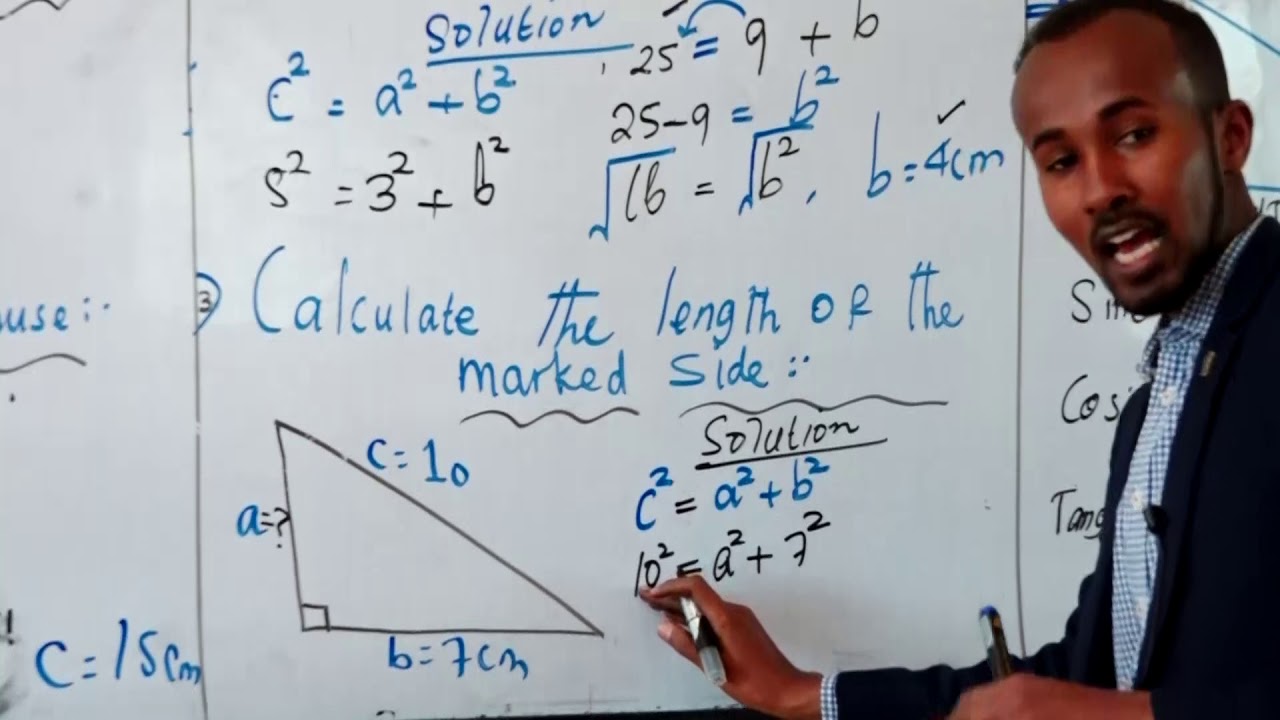 Solution
c² = a² + b²
5² = 3² + b²
25 = 9 + b
25-9 = b²
√16 = √b², b=4cm
use:
3) Calculate the length OF the
marked Side:
c=10
a=?
b=7cm
Solution
c² = a² + b²
10² = a² + 7²
C=15cm
Cos
Tang